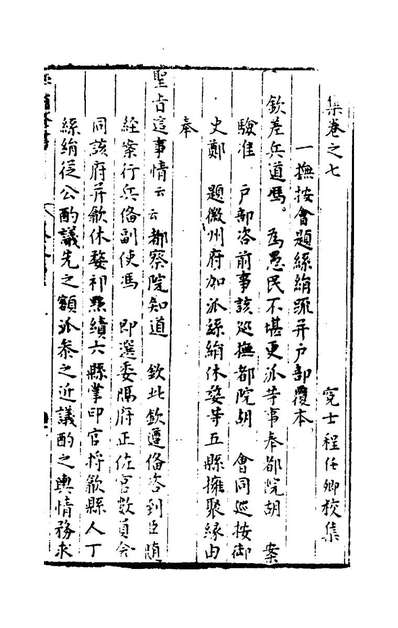 集卷之七
冤士程任卿校集
一撫按會題絲絹疏并户部覆本
欽差兵道馮。為愚民不堪更派等事奉都院胡 案
驗准 户部咨前事該巡撫都院胡 會同巡按御
史鄭 題徽州府加派絲絹休婺等五縣擁聚緣由
奉
聖旨這事情云云都察院知道 欽此欽遵備咨到臣隨
經案行兵備副使馮 即選委隣府正佐官數員會
同該府并歙休婺祁黟績六縣掌印官将歙縣人丁
絲絹從公酌議先之額派叅之近議酌之輿情務求